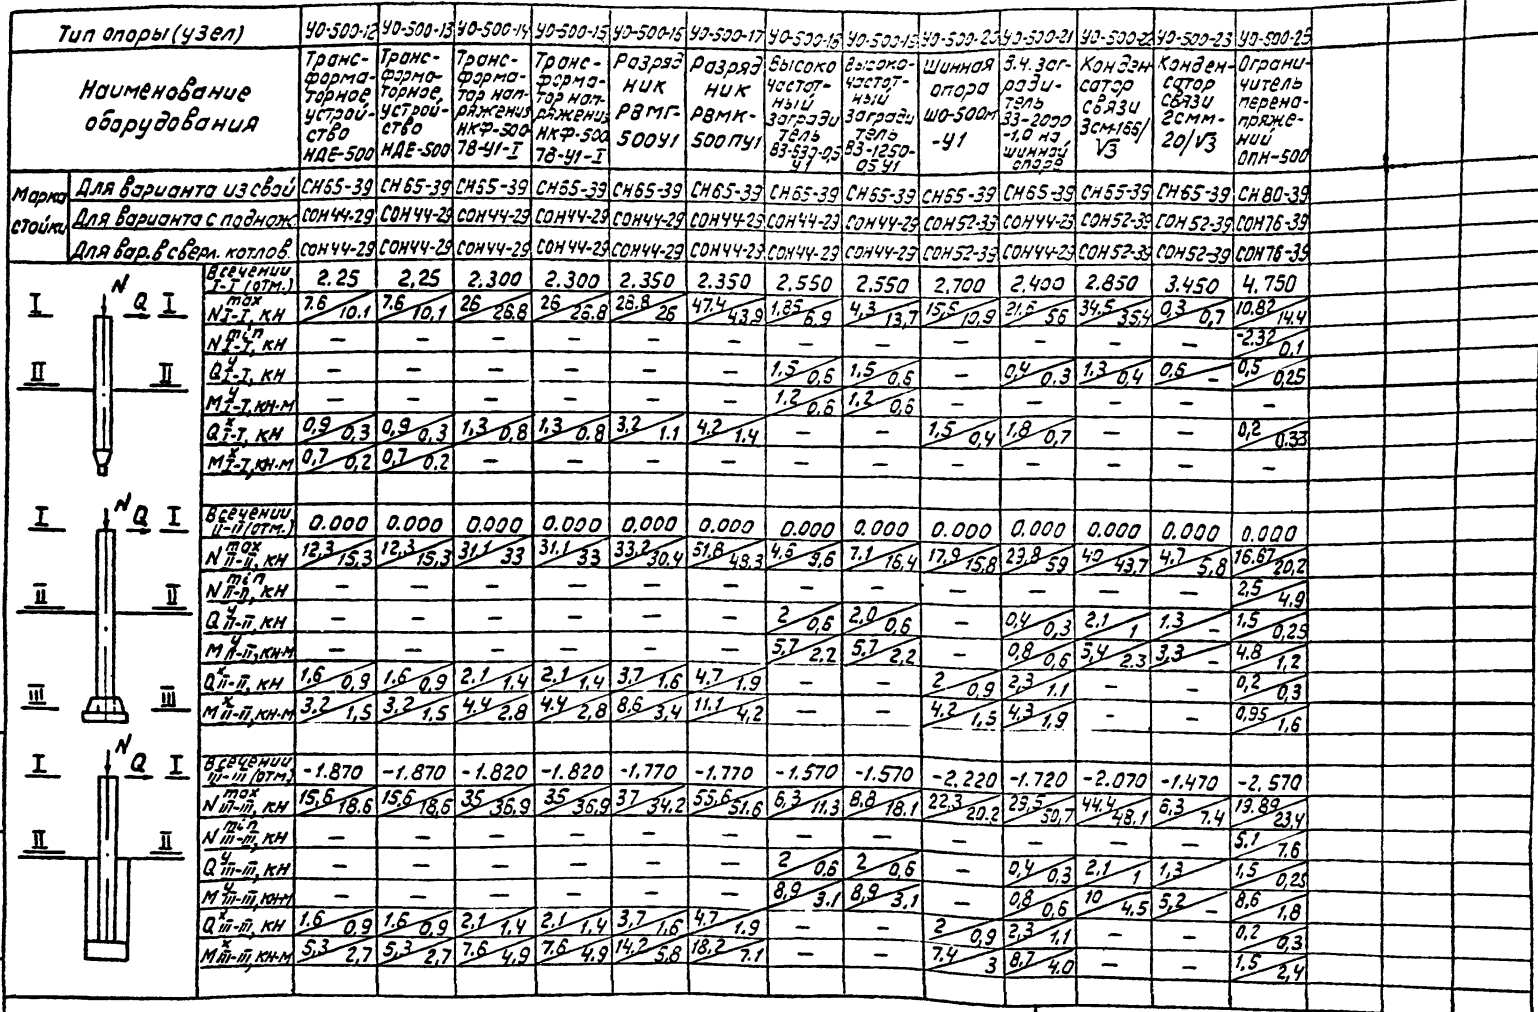 Тип опоры (узел) УО-500-12 УО-500-13 УО-500-14 УО-500-15 УО-500-16 УО-500-17 УО-500-18 УО-500-19 УО-500-20 УО-500-21 УО-500-22 УО-500-23 УО-500-25
Наименование оборудования
Транс-форма-торное устрой-ство НДЕ-500
Транс-форма-торное устрой-ство НДЕ-500
Транс-форма-тор нап-ряжения НКФ-500 78-У1-I
Транс-форма-тор нап-ряжения НКФ-500 78-У1-I
Разряд ник РВМГ-500У1
Разряд ник РВМК-500ПУ1
Высоко частот-ный загради тель ВЗ-630-0,5 У1
Высоко-частот-ный загради тель ВЗ-1250-05У1
Шинная опора ШО-500м -У1
В.ч. заг-ради-тель ВЗ-2000 -1,0 на шинной опоре
Конден сатор связи 3см-166/√3
Конден-сатор связи 2смм-20/√3
Ограни-читель перена-пряже-ний ОПН-500
Марка стойки
Для варианта из свай СН65-39 СН65-39 СН65-39 СН65-39 СН65-39 СН65-39 СН65-39 СН65-39 СН65-39 СН65-39 СН65-39 СН65-39 СН80-39
Для варианта с поднож. СОН44-29 СОН44-29 СОН44-29 СОН44-29 СОН44-29 СОН44-29 СОН44-29 СОН44-29 СОН52-39 СОН44-29 СОН52-39 СОН52-39 СОН76-39
Для вар. в сверл. котлов. СОН44-29 СОН44-29 СОН44-29 СОН44-29 СОН44-29 СОН44-29 СОН44-29 СОН44-29 СОН52-39 СОН44-29 СОН52-39 СОН52-39 СОН76-39
N
I Q I
II II
В сечении I-I (отм.) 2.25 2,25 2.300 2.300 2.350 2.350 2.550 2.550 2.700 2,400 2.850 3.450 4.750
N max I-I, кН 7.6/10.1 7.6/10,1 26/26.8 26/26.8 28.8/26 47.4/43.9 1,85/6.9 4,3/13,7 15,5/10.9 21.6/56 34.5/35.4 0,3/0,7 10.82/14.4
N min I-I, кН – – – – – – – – – – – – -2.32/0.1
Q У I-I, кН – – – – – – 1.5/0,6 1.5/0,6 – 0,4/0.3 1.3/0,4 0,6/– 0,5/0,25
М У I-I, кН·м – – – – – – 1.2/0.6 1.2/0,6 – – – – –
Q х I-I, кН 0,9/0,3 0,9/0,3 1,3/0,8 1,3/0.8 3,2/1.1 4.2/1.4 – – 1,5/0,4 1.8/0,7 – – 0,2/0.33
М х I-I, кН·м 0,7/0,2 0,7/0.2 – – – – – – – – – – –
N
I Q I
II II
III III
В сечении II-II (отм.) 0.000 0.000 0.000 0.000 0.000 0.000 0.000 0.000 0.000 0.000 0.000 0.000 0.000
N max II-II, кН 12,3/15,3 12,3/15,3 31,1/33 31.1/33 33,2/30.4 51,8/49.3 4.6/9.6 7.1/16.4 17,9/15,8 23,8/59 40/43,7 4.7/5,8 16.67/20,2
N min II-II, кН – – – – – – – – – – – – 2,5/4.9
Q У II-II, кН – – – – – – 2/0,6 2,0/0,6 – 0,4/0,3 2.1/1 1.3/– 1.5/0,25
М У II-II, кН·м – – – – – – 5,7/2,2 5,7/2,2 – 0,8/0,6 5,4/2.3 3,3/– 4.8/1,2
Q х II-II, кН 1,6/0,9 1.6/0,9 2.1/1.4 2,1/1,4 3,7/1.6 4.7/1.9 – – 2/0,9 2,3/1.1 – – 0,2/0,3
М х II-II, кН·м 3,2/1,5 3,2/1.5 4.4/2.8 4.4/2,8 8,6/3,4 11.1/4,2 – – 4.2/1,5 4,3/1.9 – – 0,95/1,6
N
I Q I
II II
В сечении III-III (отм.) -1.870 -1.870 -1.820 -1.820 -1,770 -1.770 -1.570 -1.570 -2,220 -1.720 -2.070 -1.470 -2,570
N max III-III, кН 15,6/18.6 15,6/18,6 35/36,9 35/36,9 37/34.2 55,6/51.6 6,3/11.3 8.8/18.1 22,3/20.2 29,5/50,7 44.4/48,1 6,3/7.4 19.89/23,4
N min III-III, кН – – – – – – – – – – – – 5,1/7.6
Q У III-III, кН – – – – – – 2/0,6 2/0,6 – 0,4/0,3 2,1/1 1,3 1,5/0,25
М У III-III, кН·м – – – – – – 8,9/3.1 8,9/3,1 – 0,8/0,6 10/4.5 5,2/– 8,6/1,8
Q х III-III, кН 1.6/0.9 1.6/0,9 2,1/1.4 2.1/1,4 3,7/1,6 4,7/1.9 – – 2/0,9 2,3/1,1 – – 0,2/0,3
М х III-III, кН·м 5,3/2,7 5,3/2,7 7.6/4,9 7,6/4.9 14,2/5,8 18,2/7.1 – – 7.4/3 8,7/4.0 – – 1,5/2,4